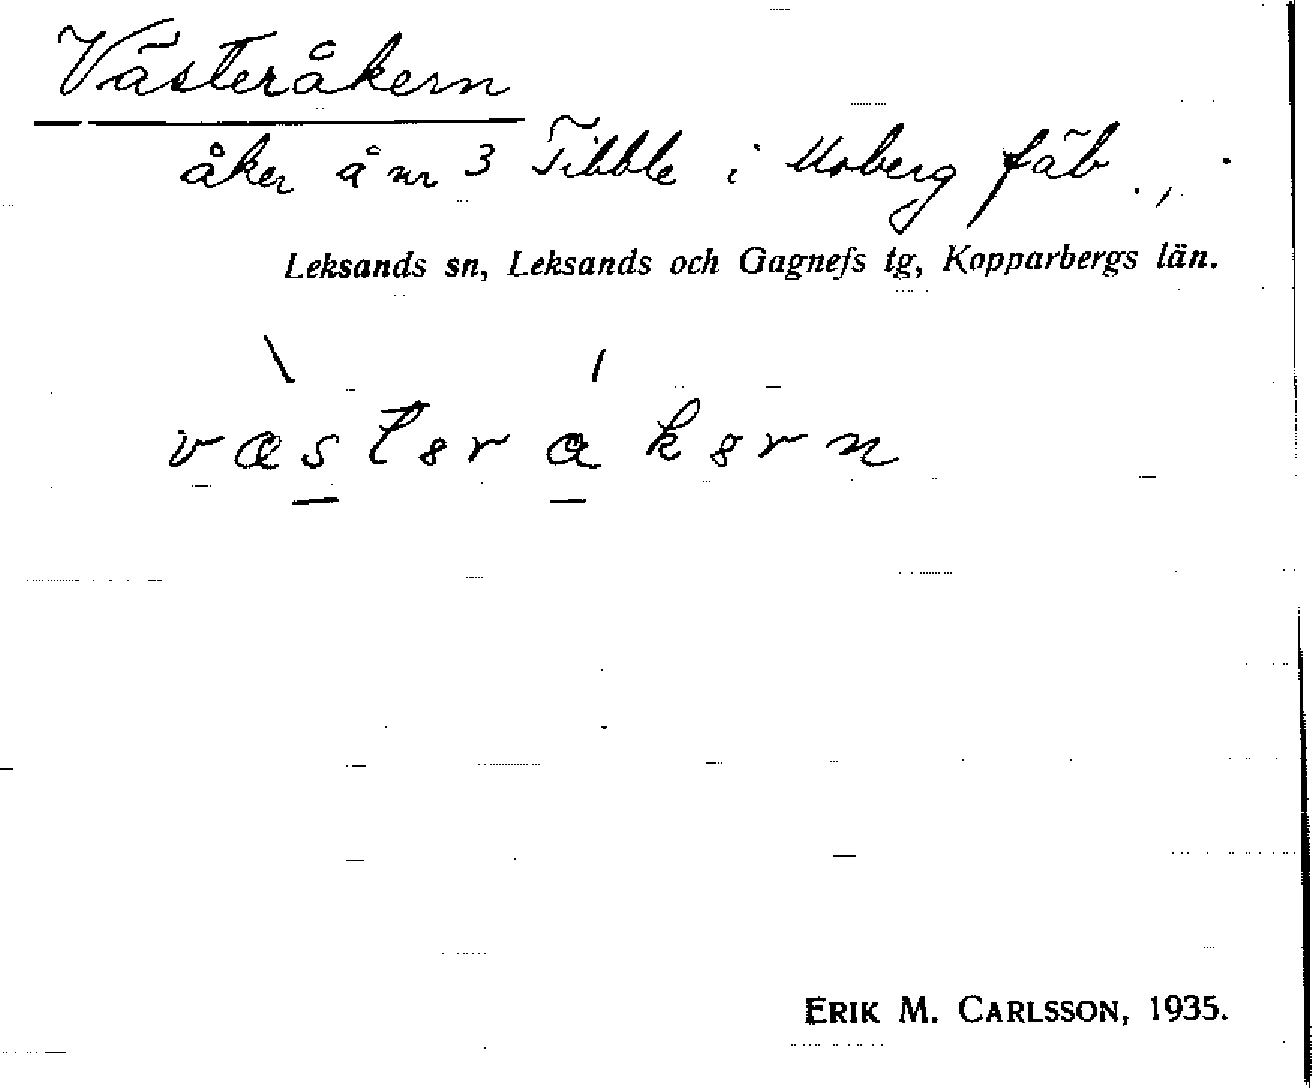 Västeråkern
åker å nr 3 Tibble i Moberg fäb.,
Leksands sn, Leksands och Gagnefs tg, Kopparbergs län.
væstərakərn
ERIK M. CARLSSON, 1935.